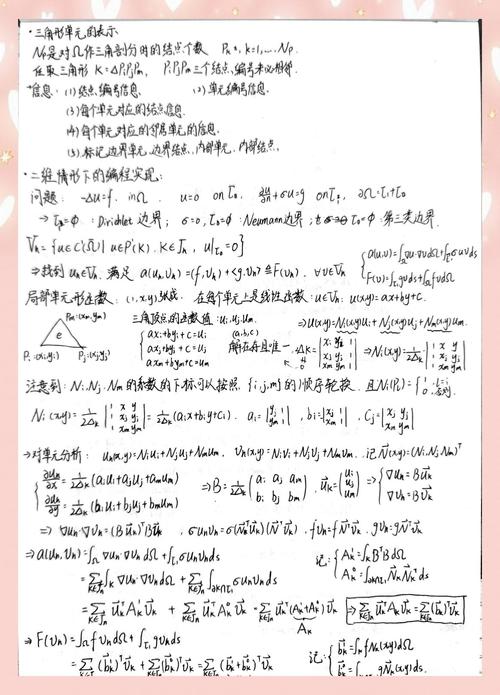 · 三角形单元的表示
Np是对Ω作三角剖分时的结点个数 Pk, k=1,...,Np.
任取三角形 K=ΔPiPjPm, PiPjPm三个结点,编号未必相邻.
*信息: (1) 结点编号信息. (2) 单元编号信息.
(3) 每个单元对应的结点信息.
(4) 每个单元对应的邻居单元的信息.
(5) 标记边界单元,边界结点,内部单元,内部结点.
· 二维情形下的编程实现:
问题: -Δu=f. in Ω. u=0 on Γ0. ∂u/∂n+σu=g on Γ1. ∂Ω=Γ1+Γ0
→ Γ1=Φ: Dirichlet 边界; σ=0, Γ0=Φ: Neumann边界; Γ0=Φ: 第三类边界.
Vh={u∈C(Ω̄)| u∈P'(K). K∈Jh, u|Γ0=0} {a(u,v)=∫Ω∇u·∇v dΩ+∫Γ1 σuv ds
⇒找到 uh∈Vh. 满足 a(uh,vh)=(f,vh)+<g,vh>≜F(vh). ∀v∈Vh F(v)=∫Γ1 gv ds+∫Ω fv dΩ
局部单元形函数: (1,x,y)张成. 在每个单元上是线性函数: u∈Vh: u(x,y)=ax+by+c.
Pm:(xm,ym) 三角顶点的函数值: ui,uj,um. ⇒u(x,y)=Ni(x,y)ui+Nj(x,y)uj+Nm(x,y)um
e {axi+byi+c=ui axj+byj+c=uj axm+bym+c=um (a,b,c) 解存在且唯一. ΔK=|1 xi yi 1 xj yj 1 xm ym| ⇒Ni(x,y)=1/2Δk |1 x y 1 xj yj 1 xm ym|
Pi:(xi,yi) Pj:(xj,yj)
注意到: Ni,Nj,Nm的系数的下标可以按照{i,j,m}的顺序轮换. 且Ni(Pl)={1, l=i 0, 否则.
Ni(x,y)=1/2Δk |1 x y 1 xj yj 1 xm ym|=1/2Δk(aix+biy+ci). ai=|yj 1 ym 1|, bi=|xj 1 xm 1|, ci=|xj yj xm ym|
⇒对单元分析: uh(x,y)=Niui+Njuj+Nmum, vh(x,y)=Nivi+Njvj+Nmvm. 记 N(x,y)=(Ni,Nj,Nm)ᵀ
{∂uh/∂x=1/2Δk(aiui+ajuj+amum) ∂uh/∂y=1/2Δk(biui+bjuj+bmum) ⇒B=1/2Δk(ai aj am bi bj bm), uk=(ui uj um) ⇒{∇uh=Buk ∇vh=Bvk
⇒ ∇uh·∇vh=(Buk)ᵀBvk, σuhvh=σ(Nᵀuk)(Nᵀvk), fvh=fNᵀvk, gvh=gNᵀvk
⇒a(uh,vh)=∫Ω∇uh·∇vh dΩ+∫Γ1 σuhvh ds 记: {A'k=∫k BᵀB dΩ
=∑K∈Jh∫k∇uh·∇vh dΩ+∑K∈Jh∫∂K∩Γ1 σuhvh ds
=∑K∈Jh ukᵀA'kvk+∑K∈Jh ukᵀA''kvk=∑K∈Jh ukᵀ(A'k+A''k)vk ⇒∑K∈Jh ukᵀAkvk=∑K∈Jh(bk)ᵀvk
Ak
⇒F(vh)=∫Ω fvh dΩ+∫Γ1 gvh ds 记: {b'k=∫k fN(x,y)dΩ
=∑K∈Jh(b'k)ᵀvk+∑K∈Jh(b''k)ᵀvk=∑K∈Jh(b'k+b''k)ᵀvk gN(x,y)ds